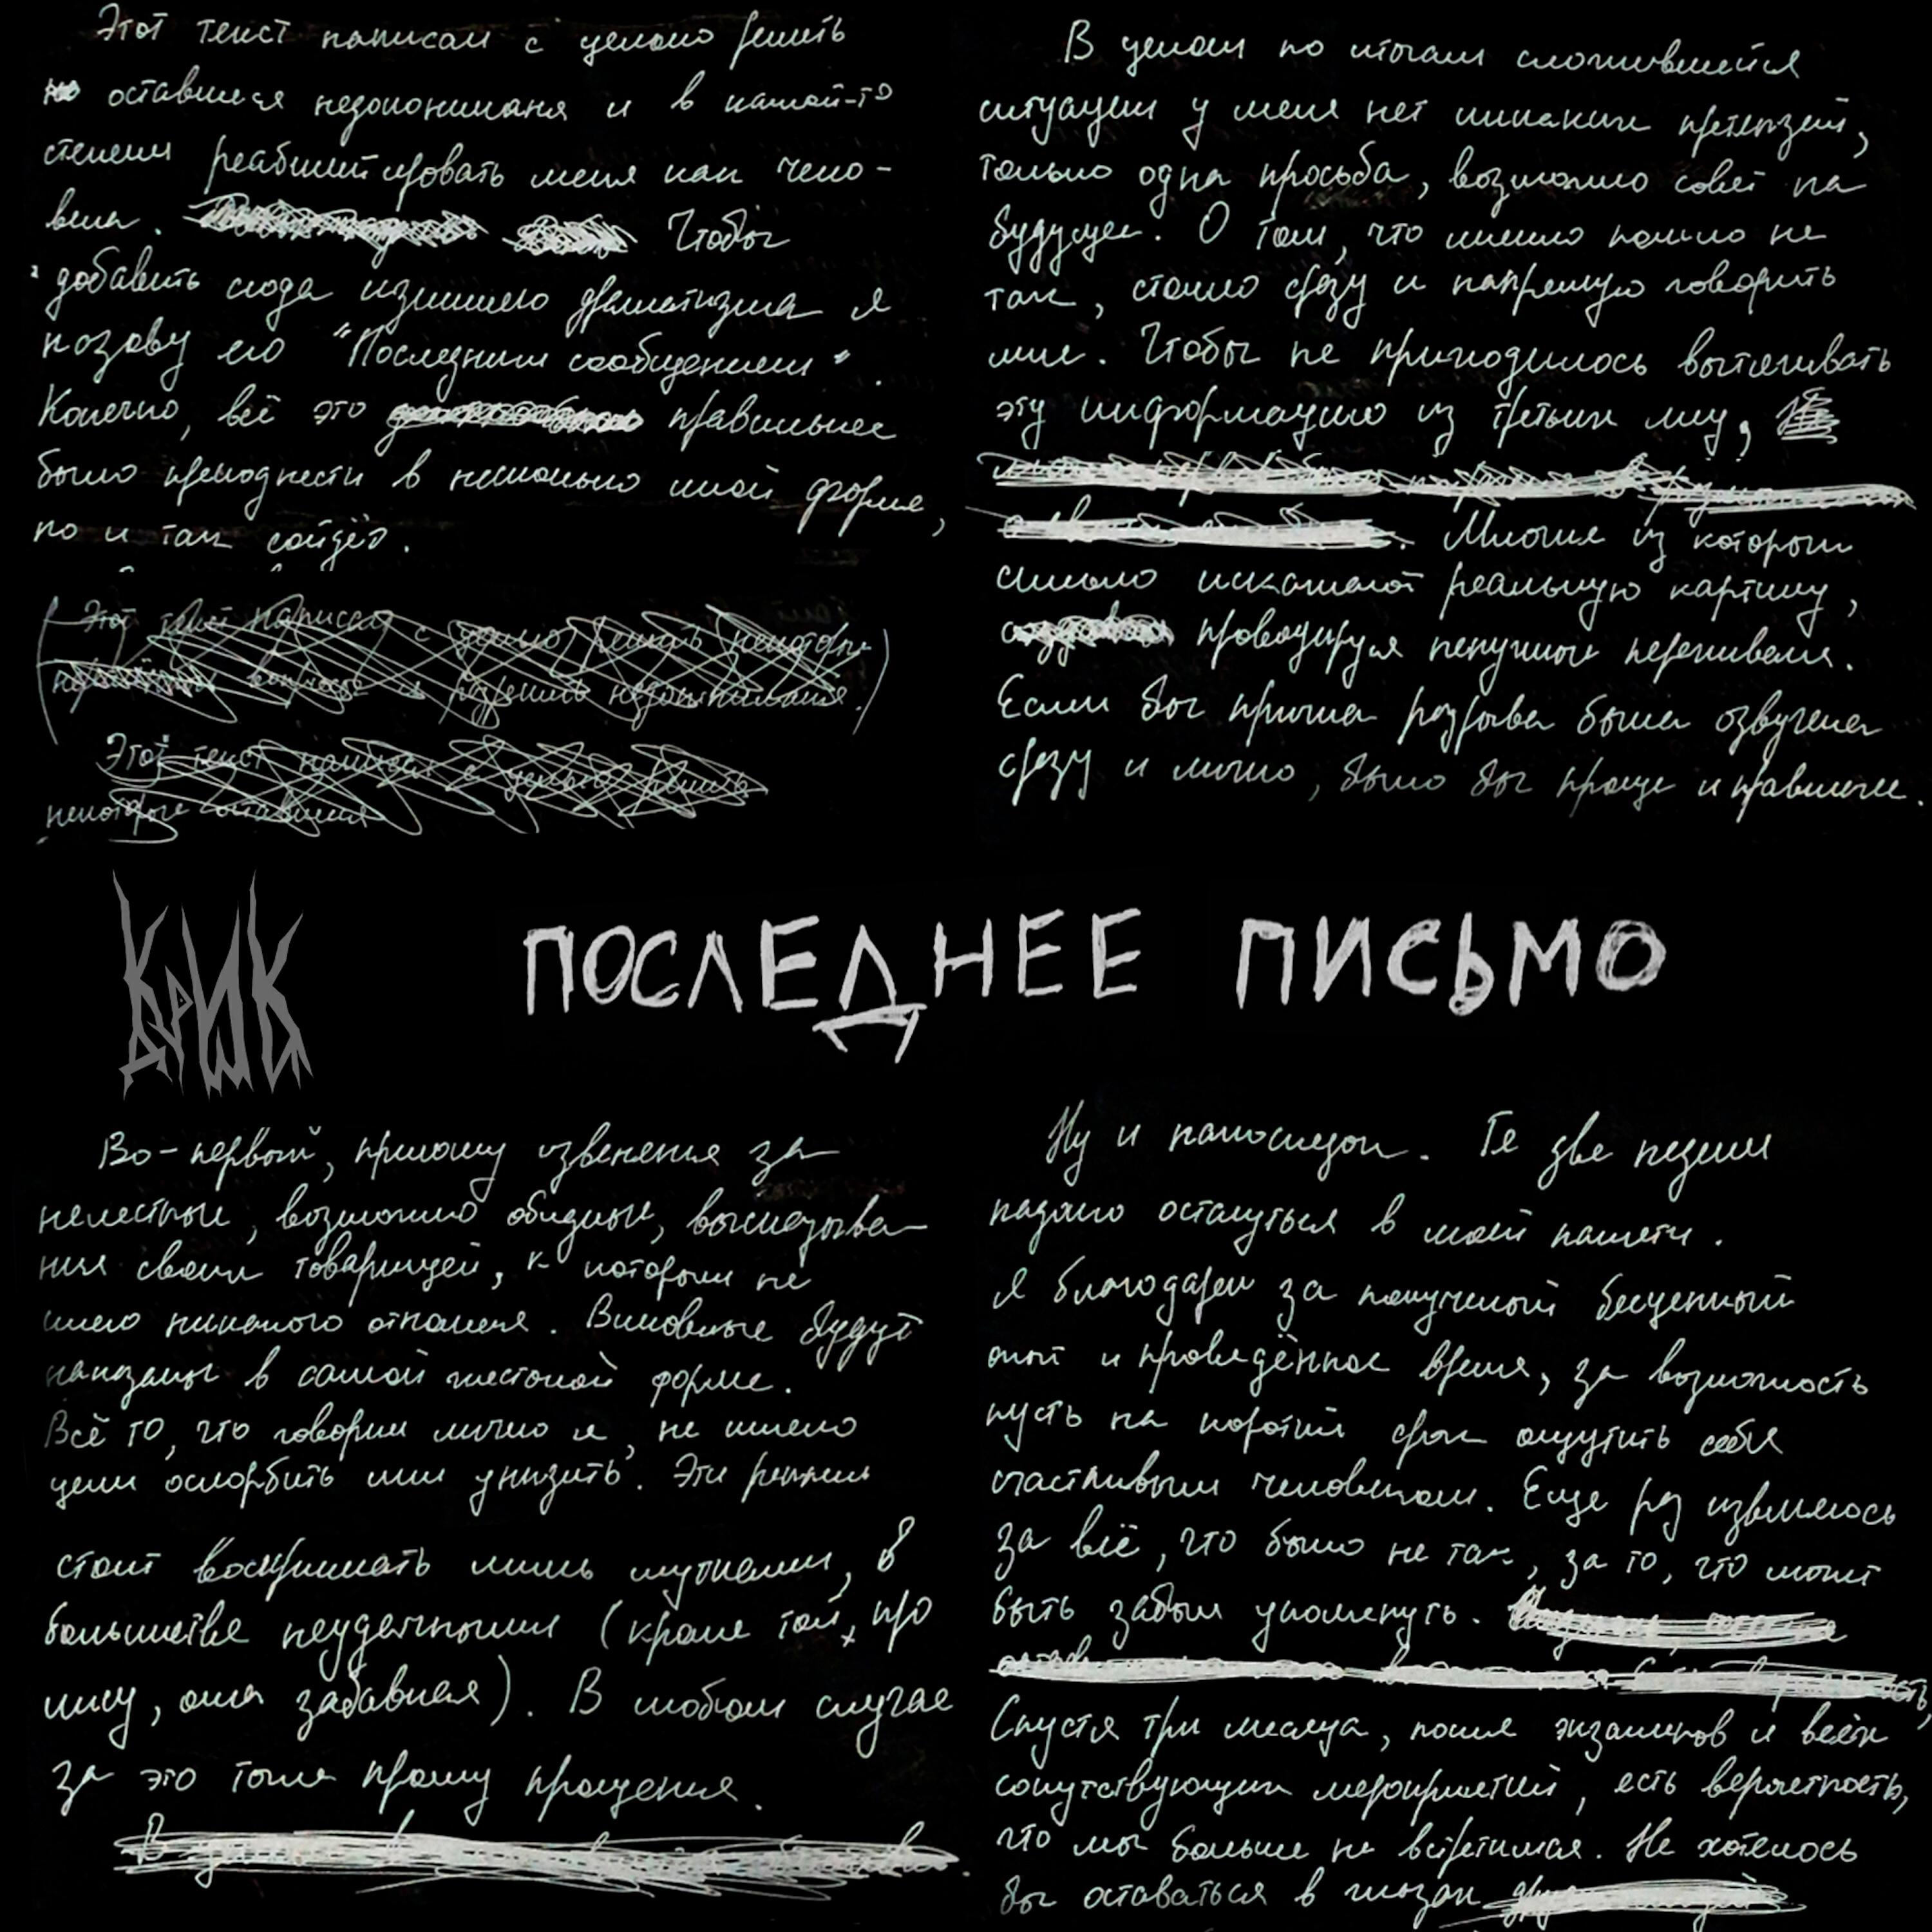 Этот текст написан с целью решить
оставшиеся недопониманя и в какой-то
степени реабилитировать меня как чело-
века. Чтобы
добавить сюда излишнего драматизма я
назову его "Последним сообщением".
Конечно, всё это правильнее
было преподнести в несколько иной форме,
но и так сойдёт.
Этот текст написан с целью решить некоторые
вопросы и разрешить недопонимания.
Этот текст написан с целью решить
некоторые оставшиеся
В целом по итогам сложившейся
ситуации у меня нет никаких претензий,
только одна просьба, возможно совет на
будущее. О том, что именно пошло не
так, стоило сразу и напрямую говорить
мне. Чтобы не приходилось вытягивать
эту информацию из третьих лиц,
Многие из которых
сильно искажают реальную картину,
провоцируя ненужные переживания.
Если бы причина разрыва была озвучена
сразу и лично, было бы проще и правильнее.
КРИК
ПОСЛЕДНЕЕ ПИСЬМО
Во-первых, приношу извенения за
нелестные, возможно обидные, высказыва-
ния своих товарищей, к которым не
имею никакого отношения. Виновные будут
наказаны в самой жестокой форме.
Всё то, что говорил лично я, не имело
цели оскорбить или унизить. Эти реплики
стоит воспринимать лишь шутками, в
большинстве неудачными (кроме той, про
лису, она забавная). В любом случае
за это тоже прошу прощения.
Ну и напоследок. Те две недели
надолго останутся в моей памяти.
Я благодарен за полученный бесценный
опыт и проведённое время, за возможность
пусть на короткий срок ощутить себя
счастливым человеком. Еще раз извиняюсь
за всё, что было не так, за то, что может
быть забыл упомянуть.
Спустя три месяца, после экзаменов и всех
сопутствующих мероприятий, есть вероятность,
что мы больше не встретимся. Не хотелось
бы оставаться в глазах